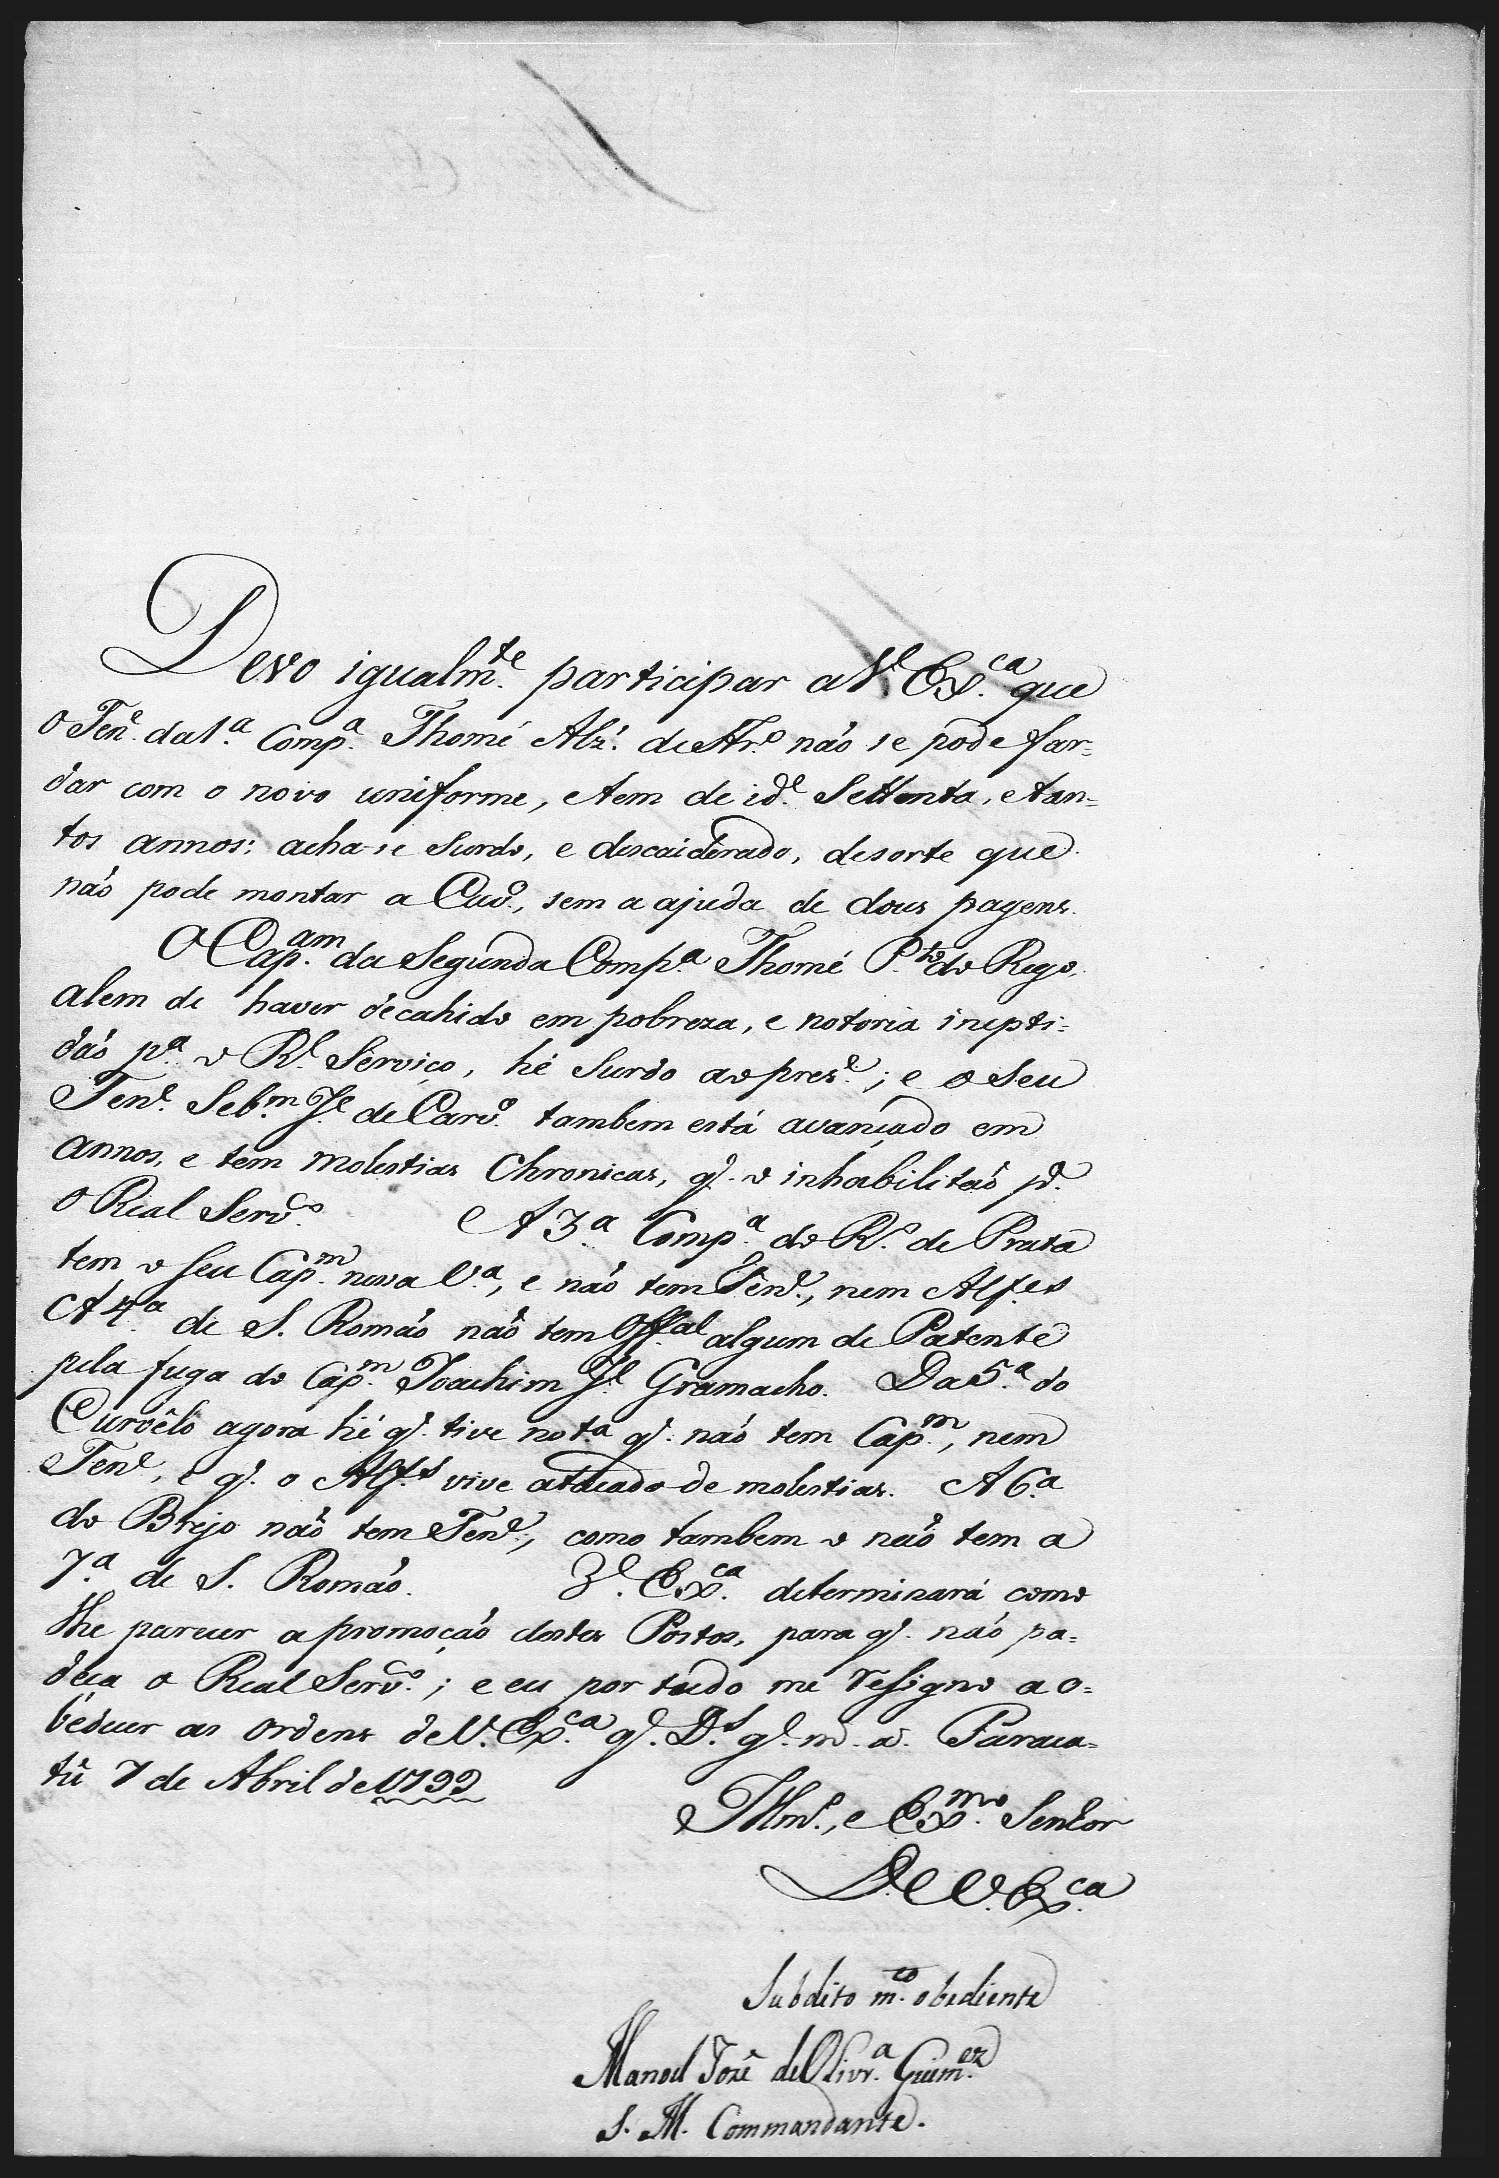 Devo igualm.te participar a V. Ex.ca que
o Ten.e da 1.a Comp.a Thomé Alz'. de Ar.o não se pode far=
dar com o novo uniforme, e tem de id.e Settenta, e tan=
tos annos: acha-se surdo, e descaiderado, desorte que
não pode montar a Cav.o, sem a ajuda de dous pagens.
O Cap.am da Segunda Comp.a Thomé P.to do Rego,
alem de haver decahido em pobreza, e notoria inepti=
dão p.a o R.l Serviço, hé surdo ao pres.e; e o seu
Ten.e Seb.m J.e de Carv.o tambem está avançado em
annos, e tem molestias Chronicas, q'. o inhabilitaõ p.a
o Real Serv.co A 3.a Comp.a do R.o da Prata
tem o seu Cap.m nessa V.a, e não tem Ten.e, nem Alf.es
A 4.a de S. Romão não tem Off.al algum de Patente
pela fuga do Cap.m Joachim J.e Gramacho. Da 5.a do
Curvêlo agora hé q'. tive not.a q'. não tem Cap.m, nem
Ten.e, e q'. o Alf.s vive atacado de molestias. A 6.a
do Brejo não tem Ten.e, como tambem o não tem a
7.a de S. Romão. V. Ex.ca determinará como
lhe parecer a promoção destes Postos, para q'. não pa=
deça o Real Serv.co; e eu por tudo me resigno a o=
bedecer as ordens de V. Ex.ca q'. D.s g.e m. a. Paraca=
tú 7 de Abril de 1799
Illm.o, e Ex.mo Senhor
De V. Ex.ca
Subdito m.to obediente
Manoel José de Olivr.a Guim.es
S. M. Commandante.